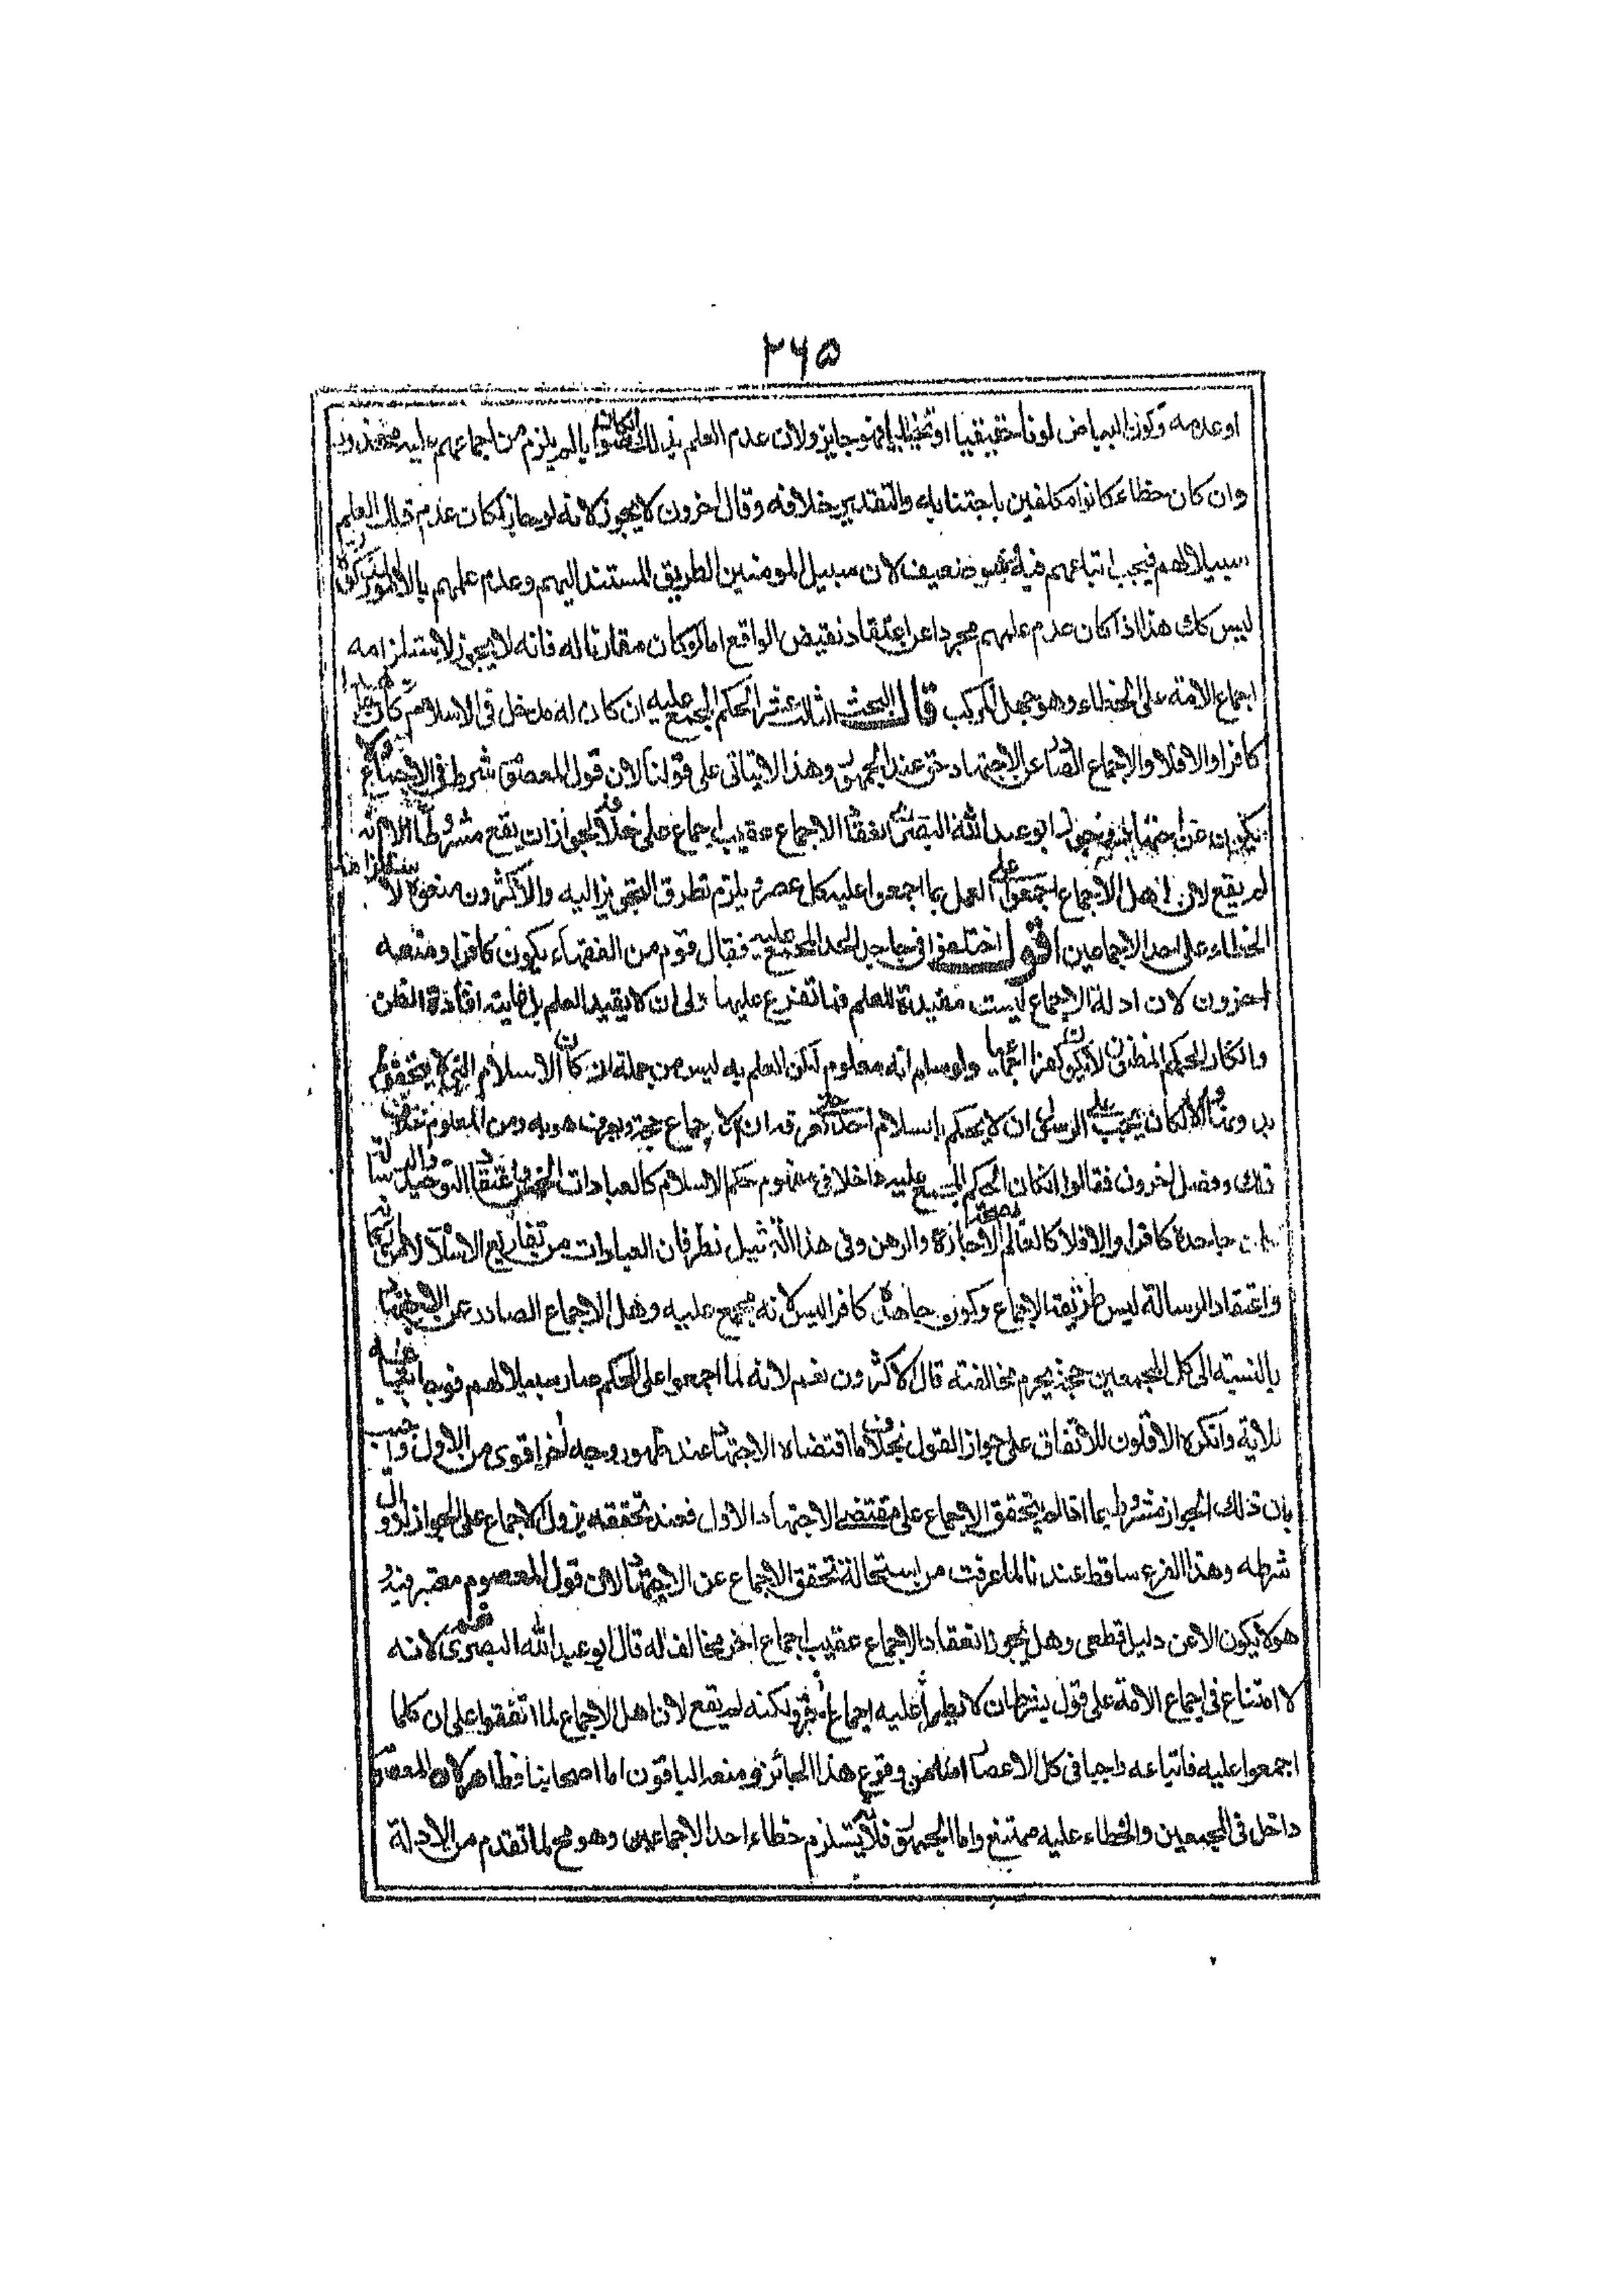 ٢٦٥
او عدمه وكون البياض لونا حقيقيا او تخييليا فهو جايز ولان عدم العلم بذلك ان كان صوابا لم يلزم من اجماعهم عليه محذور
وان كان خطاء كانوا مكلفين باجتنابه والتقدير خلافه وقال اخرون لا يجوز لانه لو جاز لكان عدم ذلك العلم
سبيلا لهم فيجب اتباعهم فيه وهو ضعيف لان سبيل المومنين الطريق المستند اليهم وعدم علمهم بالامور
ليس كك هذا اذا كان عدم علمهم مجردا عن اعتقاد نقيض الواقع اما لو كان مقارنا له فانه لا يجوز لاستلزامه
اجماع الامة على الخطاء وهو جهل المركب قال البحث الثالث عشر الحكم المجمع عليه ان كان له مدخل فى الاسلام كان
كافرا والا فلا والاجماع الصا عن الاجتهاد حق عند الجمهور وهذا لا يتاتى على قولنا لان قول المعصوم شرط فى الاجماع
ابو عبد الله البصرى انعقا الاجماع عقيب اجماع على خلافه لجواز ان يقع مشروطا الا انه
لم يقع لان اهل الاجماع اجمعوا على العمل بما اجمعوا عليه كل عصر يلزم تطرق التجويز اليه والاكثرون منعوه لا ستلزامه
الخطاء على احد الاجماعين اقول اختلفوا فى جاحد الحكم المجمع عليه فقال قوم من الفقهاء يكون كافرا ومنعه
اخرون لان ادلة الاجماع ليست مفيدة للعلم فما تفرع عليها اولى ان لا يفيد العلم بل غايته افادة الظن
وانكار الحكم المظنون لا يكون كفرا اجماعا ولو سلم انه معلوم لكن العلم به ليس من جملة اركان الاسلام التى لا يتحقق
بدونها والا لكان يجب على الرسول ان لا يحكم باسلام احد حتى يعرفه ان الاجماع حجة ويعرف هو به ومن المعلوم خلاف
ذلك وفصل اخرون فقالوا ان كان الحكم المجمع عليه داخلا فى مفهوم حكم الاسلام كالعبادات الخمس واعتقا التوحيد والرسالة
كان جاحده كافرا والا فلا كالعالم بصحة الاجازة والرهن وفى هذا التمثيل نظر فان العبادات من تفاريع الاسلام
واعتقاد الرسالة ليس طريقه الاجماع وكون جاحده كافرا ليس لانه مجمع عليه وهل الاجماع الصادر عن الاجتهاد
بالنسبة الى كل المجمعين حجة يحرم مخالفته قال الاكثرون نعم لانه لما اجمعوا على الحكم صار سبيلا لهم فوجب اتباعه
للاية وانكره الاقلون للاتفاق على جواز القول بخلاف ما اقتضاه الاجتها عند ظهور وجه اخر اقوى من الاول واجيب
بان ذلك الجواز مشروط بما اذا لم يتحقق الاجماع على مقتضى الاجتهاد الاول فعند تحققه يزول الاجماع على الجواز لزوال
شرطه وهذا الفرع ساقط عندنا لما عرفت من استحالة تحقق الاجماع عن الاجتها لان قول المعصوم معتبر فيه و
هو لا يكون الا عن دليل قطعى وهل يجوز انعقاد الاجماع عقيب اجماع اخر مخالف له قال ابو عبد الله البصرى نعم لانه
لا امتناع فى اجماع الامة على قول بشرط ان لا يطرأ عليه اجماع اخر ولكنه لم يقع لان اهل الاجماع لما اتفقوا على ان كلما
اجمعوا عليه فاتباعه واجبا فى كل الاعصا امنا من وقوع هذا الجائز ومنعه الباقون اما اصحابنا فظاهر لان المعصوم
داخل فى المجمعين والخطاء عليه ممتنع واما الجمهور فلانه يستلزم خطاء احد الاجماعين وهو مح لما تقدم من الادلة